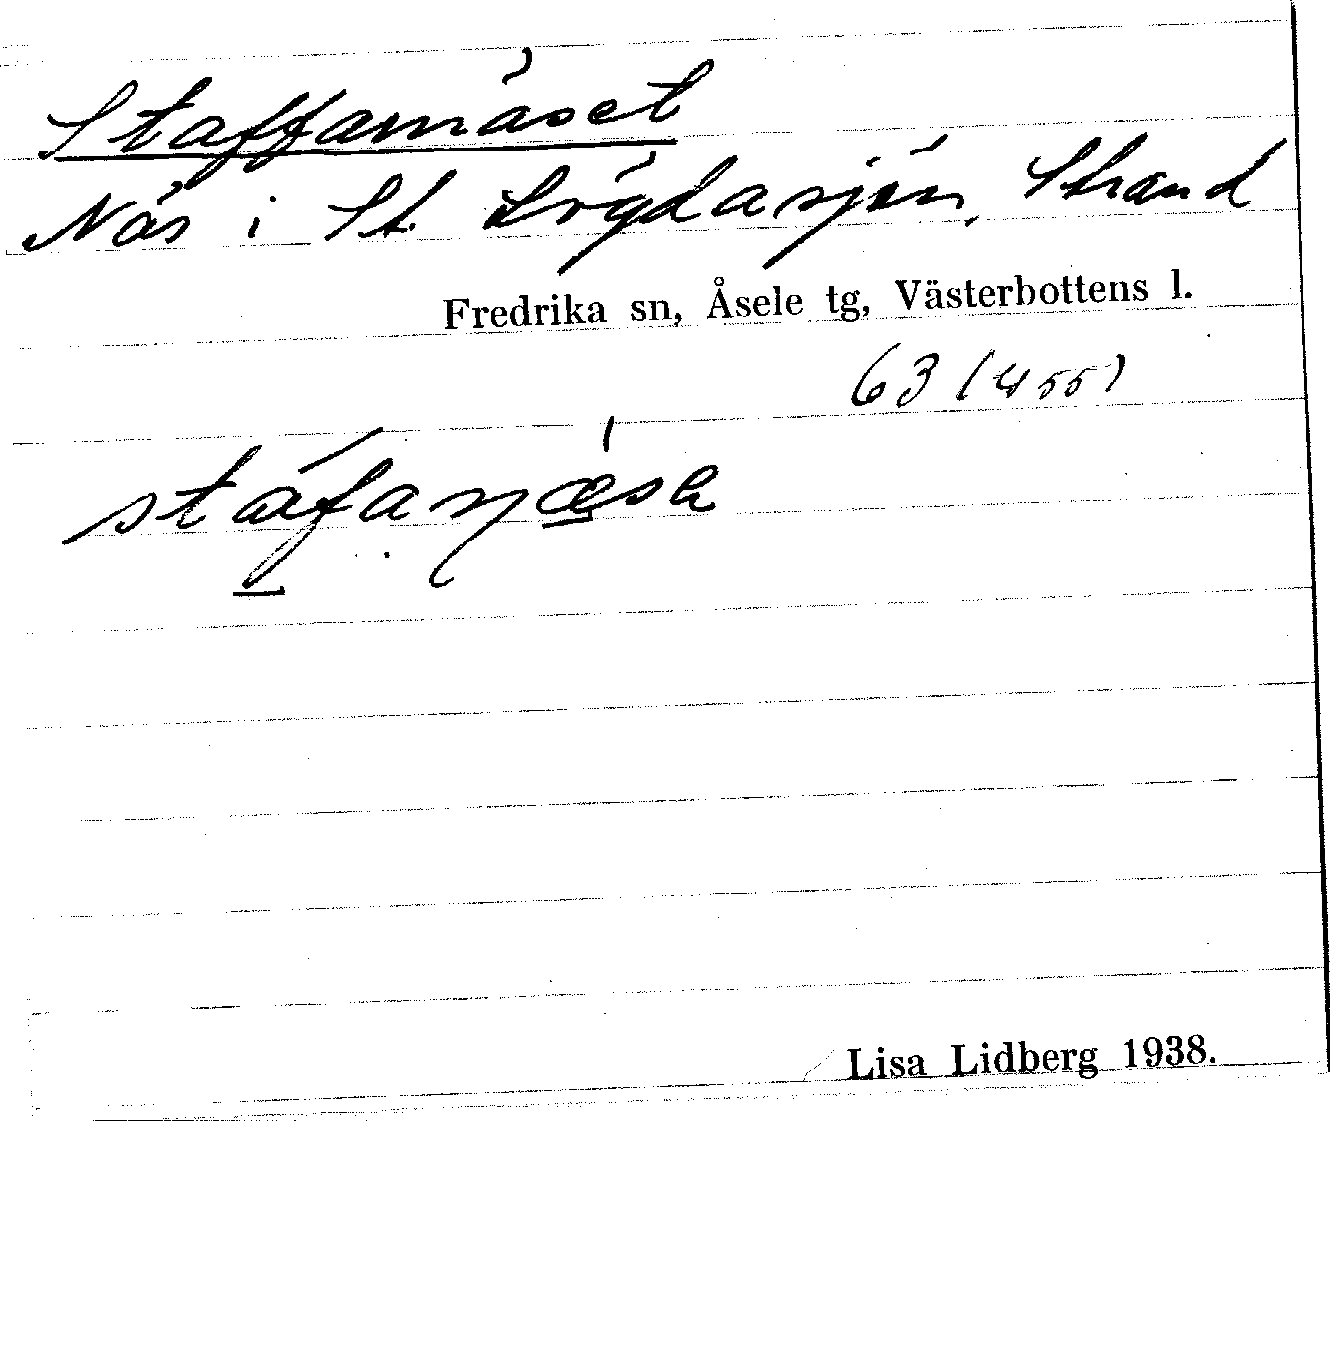 Staffanäset
Näs i St. Lögdasjön, Strand
Fredrika sn, Åsele tg, Västerbottens l.
63 (455)
Lisa Lidberg 1938.